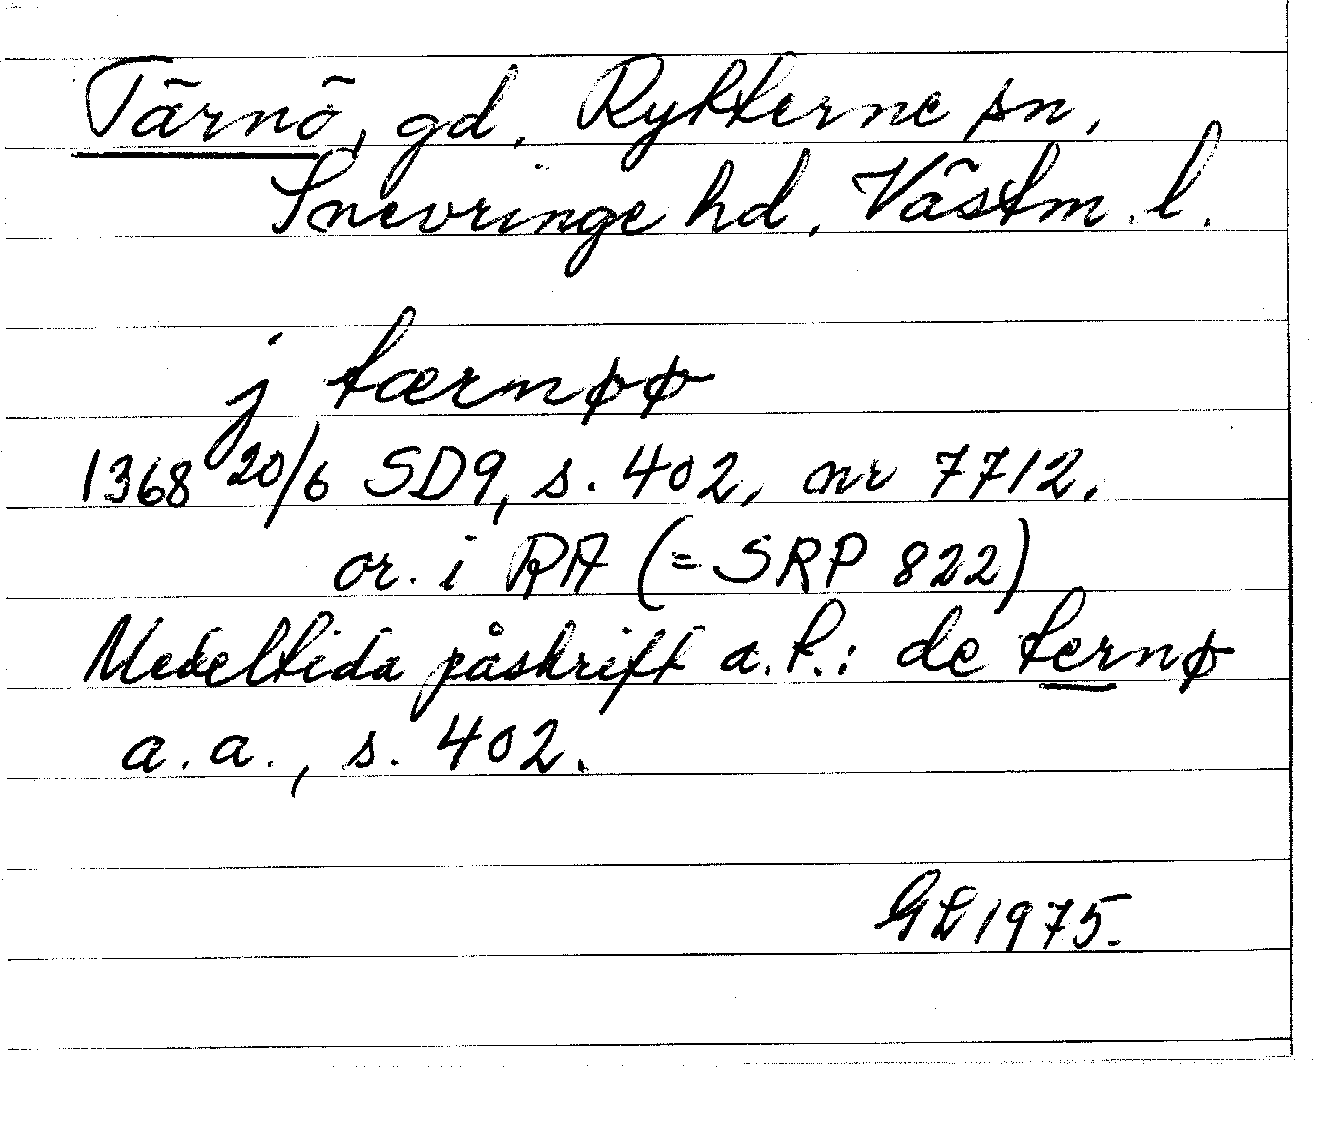 Tärnö, gd, Rytterne sn,
Snevringe hd, Västm. l.
j tærnøø
1368 20/6 SD9, s. 402, nr 7712.
or. i RA (= SRP 822)
Medeltida påskrift a.t.: de ternø
a.a., s. 402.
GL 1975.